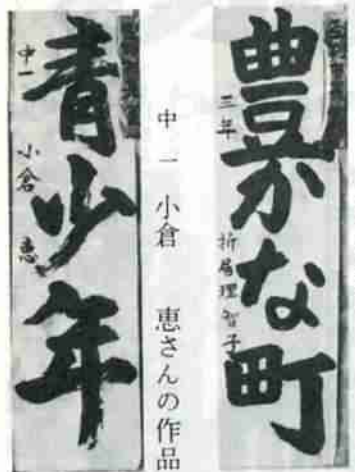 豊かな町
三年 折居理智子
中一 小倉 恵さんの作品
青少年
中一 小倉 恵